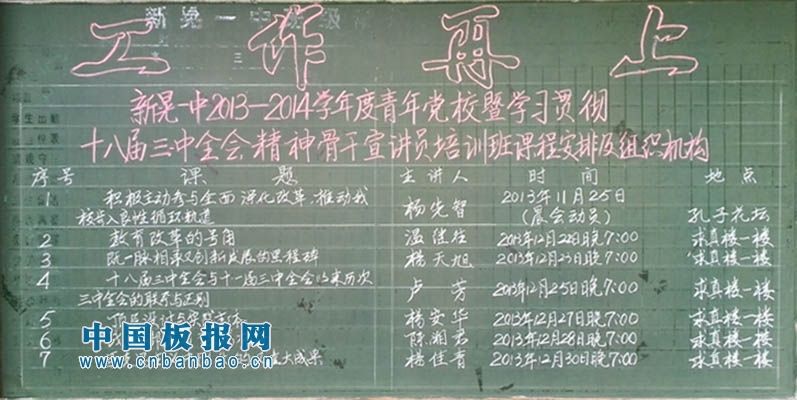 新晃一中班级
工作再上
新晃一中2013—2014学年度青年党校暨学习贯彻
十八届三中全会精神骨干宣讲员培训班课程安排及组织机构
序号 课题 主讲人 时间 地点
1 积极主动参与全面深化改革、推动我 杨先智 2013年11月25日
校步入良性循环轨道 (晨会动员) 孔子花坛
2 教育改革的号角 2013年12月22日晚7:00 求真楼一楼
3 既一脉相承又创新发展的里程碑 杨天旭 2013年12月23日晚7:00 求真楼一楼
4 十八届三中全会与十一届三中全会以来历次
三中全会的联系与区别 卢芳 2013年12月25日晚7:00 求真楼一楼
5 顶层设计与 杨安华 2013年12月27日晚7:00 求真楼一楼
6 陈湘君 2013年12月28日晚7:00 求真楼一楼
7 大成果 杨佳青 2013年12月30日晚7:00 求真楼一楼
中国板报网
www.cnbanbao.cn